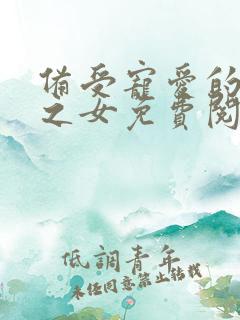 備受寵愛的
之女免費閱
低調青年
未經同意禁止轉載